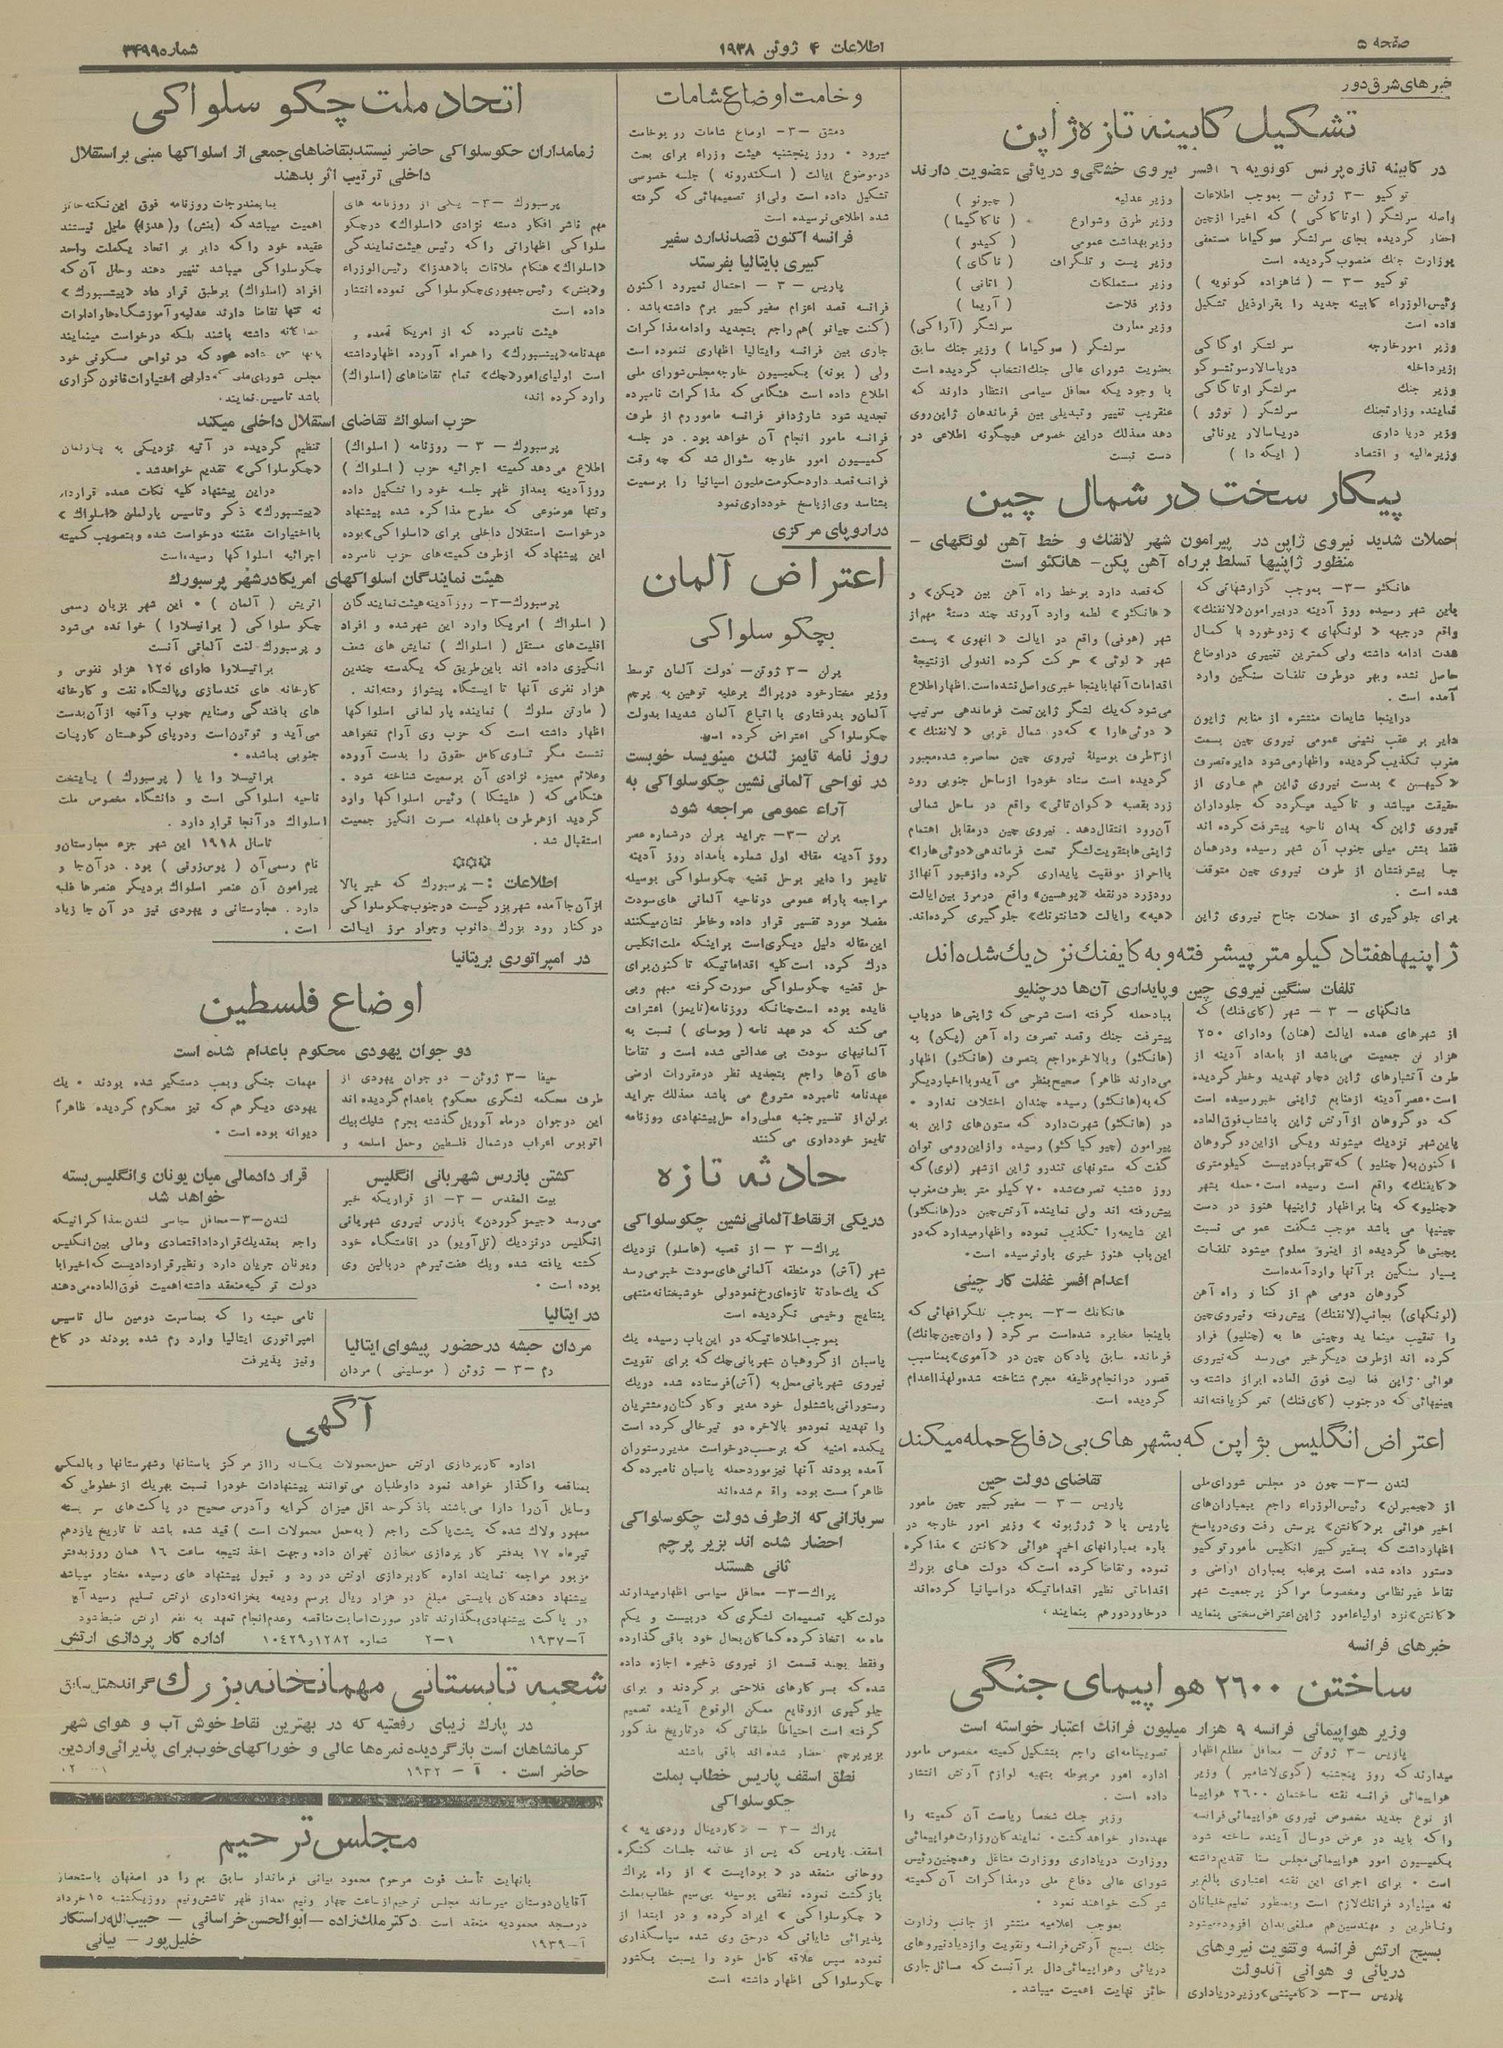 صفحه ۵
اطلاعات ۴ ژوئن ۱۹۳۸
شماره ۳۴۹۹
خبرهای شرق دور
تشکیل کابینه تازه ژاپن
در کابینه تازه پرنس کونویه ۶ افسر نیروی خشگی و دریائی عضویت دارند
توکیو -۳ ژوئن- بموجب اطلاعات
واصله سرلشگر (اوتاکاکی) که اخیرا ازچین
احضار گردیده بجای سرلشگر سوگیاما مستعفی
بوزارت جنك منصوب گردیده است
توکیو -۳- (شاهزاده کونویه)
رئیس‌الوزراء کابینه جدید را بقرارذیل تشکیل
داده است
وزیر امور خارجه سرلشگر اوگاکی
وزیر داخله دریاسالار سوتسوگو
وزیر جنك سرلشگر اوتاگاکی
نماینده وزارتجنك سرلشگر ( نوژو )
وزیر دریاداری دریاسالار یونائی
وزیر مالیه و اقتصاد ( ایکه دا )
وزیر عدلیه ( چیونو )
وزیر طرق وشوارع ( ناکاگیما )
وزیر بهداشت عمومی ( کیدو )
وزیر پست و تلگراف ( ناگای )
وزیر مستملکات ( اتانی )
وزیر فلاحت ( آریما )
وزیر معارف سرلشگر (آراکی)
سرلشگر ( سوگیاما ) وزیر جنك سابق
بعضویت شورای عالی جنك انتخاب گردیده است
با وجود یکه محافل سیاسی انتظار دارند که
عنقریب تغییر وتبدیلی بین فرماندهان ژاپن روی
دهد معذلك دراین خصوص هیچگونه اطلاعی در
دست نیست
پیکار سخت در شمال چین
حملات شدید نیروی ژاپن در پیرامون شهر لانفنك و خط آهن لونگهای -
منظور ژاپنیها تسلط برراه آهن پکن- هانکئو است
هانکئو -۳- بموجب گزارشهائی که
باین شهر رسیده روز آدینه درپیرامون «لانفنك»
واقع درجبهه « لونگهای » زدوخورد با کمال
شدت ادامه داشته ولی کمترین تغییری دراوضاع
حاصل نشده وبهر دوطرف تلفات سنگین وارد
آمده است .
دراینجا شایعات منتشره از منابع ژاپون
دایر بر عقب نشینی عمومی نیروی چین بسمت
مغرب تکذیب گردیده واظهارمی شود دایره تصرف
«کیهسین» بدست نیروی ژاپن هم عاری از
حقیقت میباشد و تأکید میگردد که جلوداران
نیروی ژاپن که بدان ناحیه پیشرفت کرده اند
فقط بشش میلی جنوب آن شهر رسیده ودرهمان
جا پیشرفتشان از طرف نیروی چین متوقف
شده است .
برای جلوگیری از حملات جناح نیروی ژاپن
که قصد دارد برخط راه آهن بین «پکن» و
«هانکئو» لطمه وارد آورند چند دستهٔ مهم از
شهر (هوفی) واقع در ایالت «انهوی» بسمت
شهر « لوئی » حرکت کرده اندولی ازنتیجهٔ
اقدامات آنها باینجا خبری واصل نشده است. اظهار اطلاع
می‌شود که یك لشگر ژاپن تحت فرماندهی سرتیپ
«دوئی هارا» که در شمال غربی «لانفنك»
از ۳طرف بوسیلهٔ نیروی چین محاصره شده مجبور
گردیده است ستاد خودرا ازساحل جنوبی رود
زرد بقصبه «کوان تائی» واقع در ساحل شمالی
آن رود انتقال دهد . نیروی چین درمقابل اهتمام
ژاپنی ها بتقویت لشگر تحت فرماندهی «دوئی هارا»
با احراز موفقیت پایداری کرده وازعبور آنها از
رود زرد درنقطه «یوهسین» واقع درمرز بین ایالت
«هپه» وایالت «شانتونك» جلوگیری کرده‌اند.
ژاپنیها هفتاد کیلومتر پیشرفته و به کایفنك نزدیك شده اند
تلفات سنگین نیروی چین و پایداری آن‌ها در چنلیو
شانگهای - ۳ - شهر (کای فنك) که
از شهرهای عمده ایالت (هنان) ودارای ۲۵۰
هزار تن جمعیت می‌باشد از بامداد آدینه از
طرف آتشبارهای ژاپن دچار تهدید وخطر گردیده
است. عصر آدینه ازمنابع ژاپنی خبر رسیده است
که دو گروهان از آرتش ژاپن باشتاب فوق العاده
باین شهر نزدیك میشوند ویکی ازاین دو گروهان
اکنون به( چنلیو ) که تقریبا در بیست کیلومتری
«کایفنك» واقع است رسیده است. حمله بشهر
«چنلیو» که بنا بر اظهار ژاپنیها هنوز در دست
چینیها می باشد موجب شگفت عمو می نسبت
بچینی‌ها گردیده از اینرو معلوم میشود تلفات
بسیار سنگین بر آنها وارد آمده است
گروهان دومی هم از کنا ر راه آهن
(لونگهای) بجانب (لانفنك) پیش رفته ونیروی چین
را تعقیب مینما ید وچینی ها به (چنلیو) فرار
کرده اند ازطرف دیگر خبر می رسد که نیروی
هوائی ژاپن فعا لیت فوق العاده ابراز داشته و
چینیهائی که درجنوب (کای فنك) تمر کزیافته اند
بیاد حمله گرفته است شرحی که ژاپنی‌ها درباب
پیشرفت جنك وقصد تصرف راه آهن (پکن) به
(هانکئو) وبالاخره راجع بتصرف (هانکئو) اظهار
می‌دارند ظاهراً صحیح بنظر می آید وبا اخبار دیگر
که به (هانکئو) رسیده چندان اختلاف ندارد .
در (هانکئو) شهرت دارد که ستون‌های ژاپن به
پیرامون (چیو کیا کئو) رسیده وازاین رومی توان
گفت که ستونهای تندرو ژاپن ازشهر (لوی) که
روز ۵شنبه تصرف شده ۷۰ کیلو متر بطرف مغرب
پیش رفته اند ولی نماینده آرتش چین در(هانکئو)
این شایعه را تکذیب نموده واظهار میدارد که در
این باب هنوز خبری باو نرسیده است .
اعدام افسر غفلت کار چینی
هانکانك -۳- بموجب تلگرافهائی که
باینجا مخابره شده است سرگرد (وان چین چانك)
فرمانده سابق پادگان چین در «آموی» بمناسبت
قصور درانجام وظیفه مجرم شناخته شده ولهذا اعدام
گردیده است.
اعتراض انگلیس بژاپن که بشهرهای بی دفاع حمله میکند
لندن -۳- چون در مجلس شورای ملی
از «چمبرلن» رئیس الوزراء راجع ببمباران‌های
اخیر هوائی بر «کانتن» پرسش رفت وی درپاسخ
اظهارداشت که بسفیر کبیر انگلیس مأمور توکیو
دستور داده شده است برعلیه بمباران اراضی و
نقاط غیرنظامی ومخصوصا مراکز پرجمعیت شهر
«کانتن» نزد اولیاء امور ژاپن اعتراض سختی بنماید
تقاضای دولت چین
پاریس - ۳ - سفیر کبیر چین مامور
پاریس با « ژرژ بونه » وزیر امور خارجه در
باره بمبارانهای اخیر هوائی «کانتن» مذاکره
نموده وتقاضا کرده است که دولت های بزرك
اقداماتی نظیر اقداماتیکه دراسپانیا کرده‌اند
درخاوردور هم بنمایند.
خبرهای فرانسه
ساختن ۲۶۰۰ هواپیمای جنگی
وزیر هواپیمائی فرانسه ۹ هزار میلیون فرانك اعتبار خواسته است
پاریس -۳ ژوئن - محافل مطلع اظهار
میدارند که روز پنجشنبه (گوی لاشامبر) وزیر
هواپیمائی فرانسه نقشه ساختمان ۲۶۰۰ هواپیما
از نوع جدید مخصوص نیروی هواپیمائی فرانسه
را که باید در عرض دوسال آینده ساخته شود
بکمیسیون امور هواپیمائی مجلس سنا تقدیم داشته
است . برای اجرای این نقشه اعتباری بالغ بر
نه میلیارد فرانك لازم است وبمنظور تعلیم خلبانان
وناظرین و مهندسین هم مبلغی بدان افزوده میشود
بسیج ارتش فرانسه و تقویت نیروهای
دریائی و هوائی آندولت
پاریس -۳- «کامپنشی» وزیر دریاداری
تصویبنامه‌ای راجع بتشکیل کمیته مخصوص مامور
اداره امور مربوطه بتهیه لوازم آرتش انتشار
داده است .
وزیر جنك شخصا ریاست آن کمیته را
عهده‌دار خواهد گشت. نمایندگان وزارت هواپیمائی
ووزارت دریاداری ووزارت مشاغل وهمچنین رئیس
شورای عالی دفاع ملی درمذاکرات آن کمیته
شرکت خواهند نمود .
بموجب اعلامیه منتشر از جانب وزارت
جنك بسیج آرتش فرانسه وتقویت وازدیاد نیروهای
دریائی وهواپیمائی دال بر آنست که مسائل جاری
حائز نهایت اهمیت میباشد.
وخامت اوضاع شامات
دمشق -۳- اوضاع شامات رو بوخامت
میرود . روز پنجشنبه هیئت وزراء برای بحث
درموضوع ایالت ( اسکندرونه ) جلسه خصوصی
تشکیل داده است ولی از تصمیمهائی که گرفته
شده اطلاعی نرسیده است
فرانسه اکنون قصدندارد سفیر
کبیری بایتالیا بفرستد
پاریس - ۳ - احتمال نمیرود اکنون
فرانسه قصد اعزام سفیر کبیر برم داشته باشد .
(کنت چیانو) هم راجع بتجدید وادامه مذاکرات
جاری بین فرانسه وایتالیا اظهاری ننموده است
ولی ( بونه) بکمیسیون خارجه مجلس شورای ملی
اطلاع داده است هنگامی که مذاکرات نامبرده
تجدید شود شارژدافر فرانسه مامور رم از طرف
فرانسه مامور انجام آن خواهد بود. در جلسه
کمیسیون امور خارجه سئوال شد که چه وقت
فرانسه قصد دارد حکومت ملیون اسپانیا را برسمیت
بشناسد وی از پاسخ خودداری نمود
در اروپای مرکزی
اعتراض آلمان
بچکو سلواکی
برلن -۳ ژوئن- دولت آلمان توسط
وزیر مختار خود درپراك برعلیه توهین به پرچم
آلمان و بدرفتاری با اتباع آلمان شدیدا بدولت
چکوسلواکی اعتراض کرده است
روز نامه تایمز لندن مینویسد خوبست
در نواحی آلمانی نشین چکوسلواکی به
آراء عمومی مراجعه شود
برلن -۳- جراید برلن درشماره عصر
روز آدینه مقاله اول شماره بامداد روز آدینه
تایمز را دایر برحل قضیه چکوسلواکی بوسیله
مراجعه بآراء عمومی درناحیه آلمانی های سودت
مفصلا مورد تفسیر قرار داده وخاطر نشان میکنند
این مقاله دلیل دیگری است براینکه ملت انگلیس
درك کرده است کلیه اقداماتیکه تا کنون برای
حل قضیه چکوسلواکی صورت گرفته مبهم وبی
فایده بوده است چنانکه روزنامه(تایمز) اعتراف
می کند که درعهد نامه (ورسای) نسبت به
آلمانیهای سودت بی عدالتی شده است و تقاضا
های آن‌ها راجع بتجدید نظر درمقررات ارضی
عهدنامه نامبرده مشروع می باشد معذلك جراید
برلن از تفسیر جنبه عملی راه حل پیشنهادی روزنامه
تایمز خودداری می کنند
حادثه تازه
دریکی ازنقاط آلمانی نشین چکوسلواکی
پراك -۳ - از قصبه (هاسلو) نزدیك
شهر (آش) درمنطقه آلمانی های سودت خبر می رسد
که یك حادثهٔ تازه‌ای رخ نمود ولی خوشبختانه منتهی
بنتایج وخیمی نگردیده است
بموجب اطلاعاتیکه در این باب رسیده یك
پاسبان از گروهبان شهربانی چك که برای تقویت
نیروی شهربانی محل به (آش) فرستاده شده دریك
رستورانی باششلول خود مدیر و کارکنان ومشتریان
را تهدید نموده و بالاخره دو تیر خالی کرده است
یکعده امنیه که برحسب درخواست مدیر رستوران
آمده بودند آنها نیز مورد حمله پاسبان نامبرده که
ظاهراً مست بوده واقع شده اند
سربازانی که از طرف دولت چکوسلواکی
احضار شده اند بزیر پرچم
ثانی هستند
پراك -۳- محافل سیاسی اظهار میدارند
دولت کلیه تصمیمات لشگری که دربیست و یکم
ماه مه اتخاذ کرده کماکان بحال خود باقی گذارده
وفقط بچند قسمت از نیروی ذخیره اجازه داده
شده که بسر کارهای فلاحتی برگردند و برای
جلوگیری ازوقایع ممکن الوقوع آینده تصمیم
گرفته است احتیاطا طبقاتی که درتاریخ مذکور
بزیر پرچم حضار شده اند باقی باشند
نطق اسقف پاریس خطاب بملت
چکوسلواکی
پراك - ۳ - «کاردینال وردی یه »
اسقف پاریس که پس از خاتمه جلسات کنگره
روحانی منعقد در « بوداپست » از راه پراك
بازگشت نموده نطقی بوسیله بی‌سیم خطاب بملت
« چکوسلواکی » ایراد کرده و در ابتدا از
پذیرائی شایانی که درحق وی شده سپاسگذاری
نموده سپس علاقه کامل خود را نسبت بکشور
چکوسلواکی اظهار داشته است
اتحاد ملت چکو سلواکی
زمامداران چکوسلواکی حاضر نیستند بتقاضاهای جمعی از اسلواکها مبنی بر استقلال
داخلی ترتیب اثر بدهند
پرسبورك -۳- یکی از روزنامه های
مهم ناشر افکار دسته نژادی «اسلواك» درچکو
سلواکی اظهاراتی را که رئیس هیئت نمایندگی
«اسلواك» هنگام ملاقات با «هدزا» رئیس الوزراء
و«بنش» رئیس جمهوری چکوسلواکی نموده انتشار
داده است
هیئت نامبرده که از امریکا آمده و
عهدنامه «پیتسبورك» را همراه آورده اظهار داشته
است اولیای امور «چك» تمام تقاضاهای (اسلواك)
وارد کرده اند.
بنا بمندرجات روزنامه فوق این نکته حائز
اهمیت میباشد که (بنش) و(هدزا) مایل نیستند
عقیده خود را که دایر بر اتحاد یکملت واحد
چکوسلواکی میباشد تغییر دهند وحال آن که
افراد (اسلواك) برطبق قرار داد «پیتسبورك»
نه تنها تقاضا دارند عدلیه و آموزشگاه ها و ادارات
جداگانه داشته باشند بلکه درخواست مینمایند
داده شود که در نواحی مسکونی خود
مجلس شورای ملی که دارای اختیارات قانون گزاری
باشد تاسیس نمایند.
حزب اسلواك تقاضای استقلال داخلی میکند
پرسبورك - ۳ - روزنامه (اسلواك)
اطلاع می‌دهد کمیته اجرائیه حزب (اسلواك)
روز آدینه بعداز ظهر جلسه خود را تشکیل داده
وتنها موضوعی که مطرح مذاکره شده پیشنهاد
درخواست استقلال داخلی برای «اسلواکی» بوده
این پیشنهاد که ازطرف کمیته‌های حزب نامبرده
تنظیم گردیده در آتیه نزدیکی به پارلمان
«چکوسلواکی» تقدیم خواهد شد .
دراین پیشنهاد کلیه نکات عمده قرارداد
«پیتسبورك» ذکر وتاسیس پارلمان «اسلواك»
با اختیارات مقننه درخواست شده وبتصویب کمیته
اجرائیه اسلواکها رسیده است
هیئت نمایندگان اسلواکهای امریکا درشهر پرسبورك
پرسبورك-۳- روز آدینه هیئت نمایندگان
( اسلواك ) امریکا وارد این شهرشده و افراد
اقلیت‌های مستقل ( اسلواك ) نمایش های شعف
انگیزی داده اند باین طریق که یکدسته چندین
هزار نفری آنها تا ایستگاه پیشواز رفته‌اند.
( مارتن سلوك ) نماینده پارلمانی اسلواکها
اظهار داشته است که حزب وی آرام نخواهد
نشست مگر تساوی کامل حقوق را بدست آوده
وعلائم ممیزه نژادی آن برسمیت شناخته شود .
هنگامی که ( هلینکا ) رئیس اسلواکها وارد
گردید ازهرطرف باغلهله مسرت انگیز جمعیت
استقبال شد .
اطلاعات :- پرسبورك که خبر بالا
از آن جا آمده شهر بزرگیست درجنوب چکوسلواکی
در کنار رود بزرك دانوب وجوار مرز ایالت
اتریش ( آلمان ) . این شهر بزبان رسمی
چکوسلواکی ( براتیسلاوا ) خوانده می‌شود
و پرسبورك لغت آلمانی آنست
براتیسلاوا دارای ۱۲۵ هزار نفوس و
کارخانه های قندسازی وپالشگاه نفت و کارخانه
های بافندگی وصنایع چوب و آنچه از آن بدست
می‌آید و توتون است ودرپای کوهستان کارپات
جنوبی میباشد .
براتیسلاوا یا ( پرسبورك ) پایتخت
ناحیه اسلواکی است و دانشگاه مخصوص ملت
اسلواك در آنجا قرار دارد .
تا سال ۱۹۱۸ این شهر جزء مجارستان و
نام رسمی آن ( پوس‌زونی ) بود . در آن‌جا و
پیرامون آن عنصر اسلواك بر دیگر عنصرها غلبه
دارد . مجارستانی و یهودی نیز در آن جا زیاد
است .
در امپراتوری بریتانیا
اوضاع فلسطین
دو جوان یهودی محکوم باعدام شده است
حیفا -۳ ژوئن- دو جوان یهودی از
طرف محکمه لشگری محکوم باعدام گردیده اند
این دوجوان درماه آوریل گذشته بجرم شلیك بیك
اتوبوس اعراب درشمال فلسطین وحمل اسلحه و
مهمات جنگی وبمب دستگیر شده بودند . یك
یهودی دیگر هم که نیز محکوم گردیده ظاهراً
دیوانه بوده است .
کشتن بازرس شهربانی انگلیس
بیت المقدس -۳- از قراریکه خبر
می‌رسد «جیمز گوردن» بازرس نیروی شهربانی
انگلیس درنزدیك (تل‌آویو) در اقامتگاه خود
کشته یافته شده ویك هفت تیر هم دربالین وی
بوده است .
قرار دادمالی میان یونان و انگلیس بسته
خواهد شد
لندن-۳-محافل سیاسی لندن بمذاکراتیکه
راجع بعقد یك قرارداد اقتصادی ومالی بین انگلیس
ویونان جریان دارد ونظیر قراردادیست که اخیرا با
دولت ترکیه منعقد داشته اهمیت فوق العاده می‌دهند
در ایتالیا
مردان حبشه درحضور پیشوای ایتالیا
رم -۳ - ژوئن ( موسلینی ) مردان
نامی حبشه را که بمناسبت دومین سال تاسیس
امپراتوری ایتالیا وارد رم شده بودند در کاخ
ونیز پذیرفت
آگهی
اداره کارپردازی ارتش حمل محمولات یکساله را از مرکز باستانها وشهرستانها و بالعکس
بمناقصه واگذار خواهد نمود داوطلبان می‌توانند پیشنهادات خودرا نسبت بهریك از خطوطی که
وسایل آن را دارا می باشند باذکر حد اقل میزان کرایه و آدرس صحیح در پاکت‌های سر بسته
ممهور ولاك شده که پشت پاکت راجع ( به حمل محمولات است ) قید شده باشد تا تاریخ یازدهم
تیر ماه ۱۷ بدفتر کارپردازی مخازن تهران داده وجهت اخذ نتیجه ساعت ۱۶ همان روز بدفتر
مزبور مراجعه نمایند اداره کارپردازی ارتش در رد و قبول پیشنهاد های رسیده مختار میباشد
پیشنهاد دهندگان بایستی مبلغ دو هزار ریال برسم ودیعه بخزانه‌داری ارتش تسلیم رسید آنرا
در پاکت پیشنهادی بگذارند تا در صورت اصابت مناقصه وعدم انجام تعهد به نفع ارتش ضبط شود
آ-۱۹۳۷ ۲-۱ شماره ۱۰۴۲۹٫۱۲۸۲ اداره کار پردازی ارتش
شعبه تابستانی مهمانخانه بزرك گراند هتل سابق
در پارك زیبای رفعتیه که در بهترین نقاط خوش آب و هوای شهر
کرمانشاهان است باز گردیده نمره‌ها عالی و خوراکهای خوب برای پذیرائی واردین
حاضر است . آ - ۱۹۳۲
مجلس ترحیم
بانهایت تأسف فوت مرحوم محمود بیانی فرماندار سابق بم را در اصفهان باستحضار
آقایان دوستان میرساند مجلس ترحیم از ساعت چهار ونیم بعداز ظهر تا شش ونیم روز یکشنبه ۱۵ خرداد
درمسجد محمودیه منعقد است دکتر ملك زاده - ابوالحسن خراسانی - حبیب‌الله راستکار
خلیل پور - بیانی
آ-۱۹۳۹